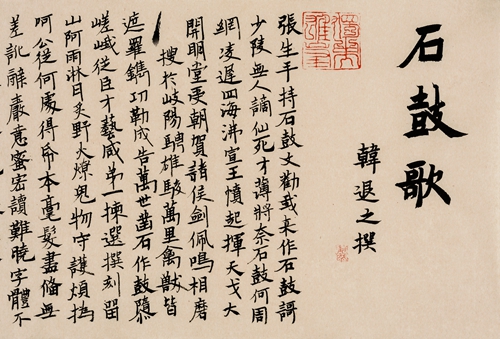 石鼓歌
韓退之撰
張生手持石鼓文勸我来作石鼓謌
少陵無人謫仙死才薄將奈石鼓何周
網凌遲四海沸宣王憤起揮天戈大
開明堂受朝賀諸侯劍佩鳴相磨
搜於岐陽騁雄駿萬里禽獸皆
遮羅鐫功勒成告萬世鑿石作鼓隳
嵯峨從臣才藝咸第一揀選撰刻留
山阿雨淋日炙野火燎鬼物守護煩撝
呵公從何處得帋本毫髮盡備無
差訛辭嚴意蜜密讀難曉字體不